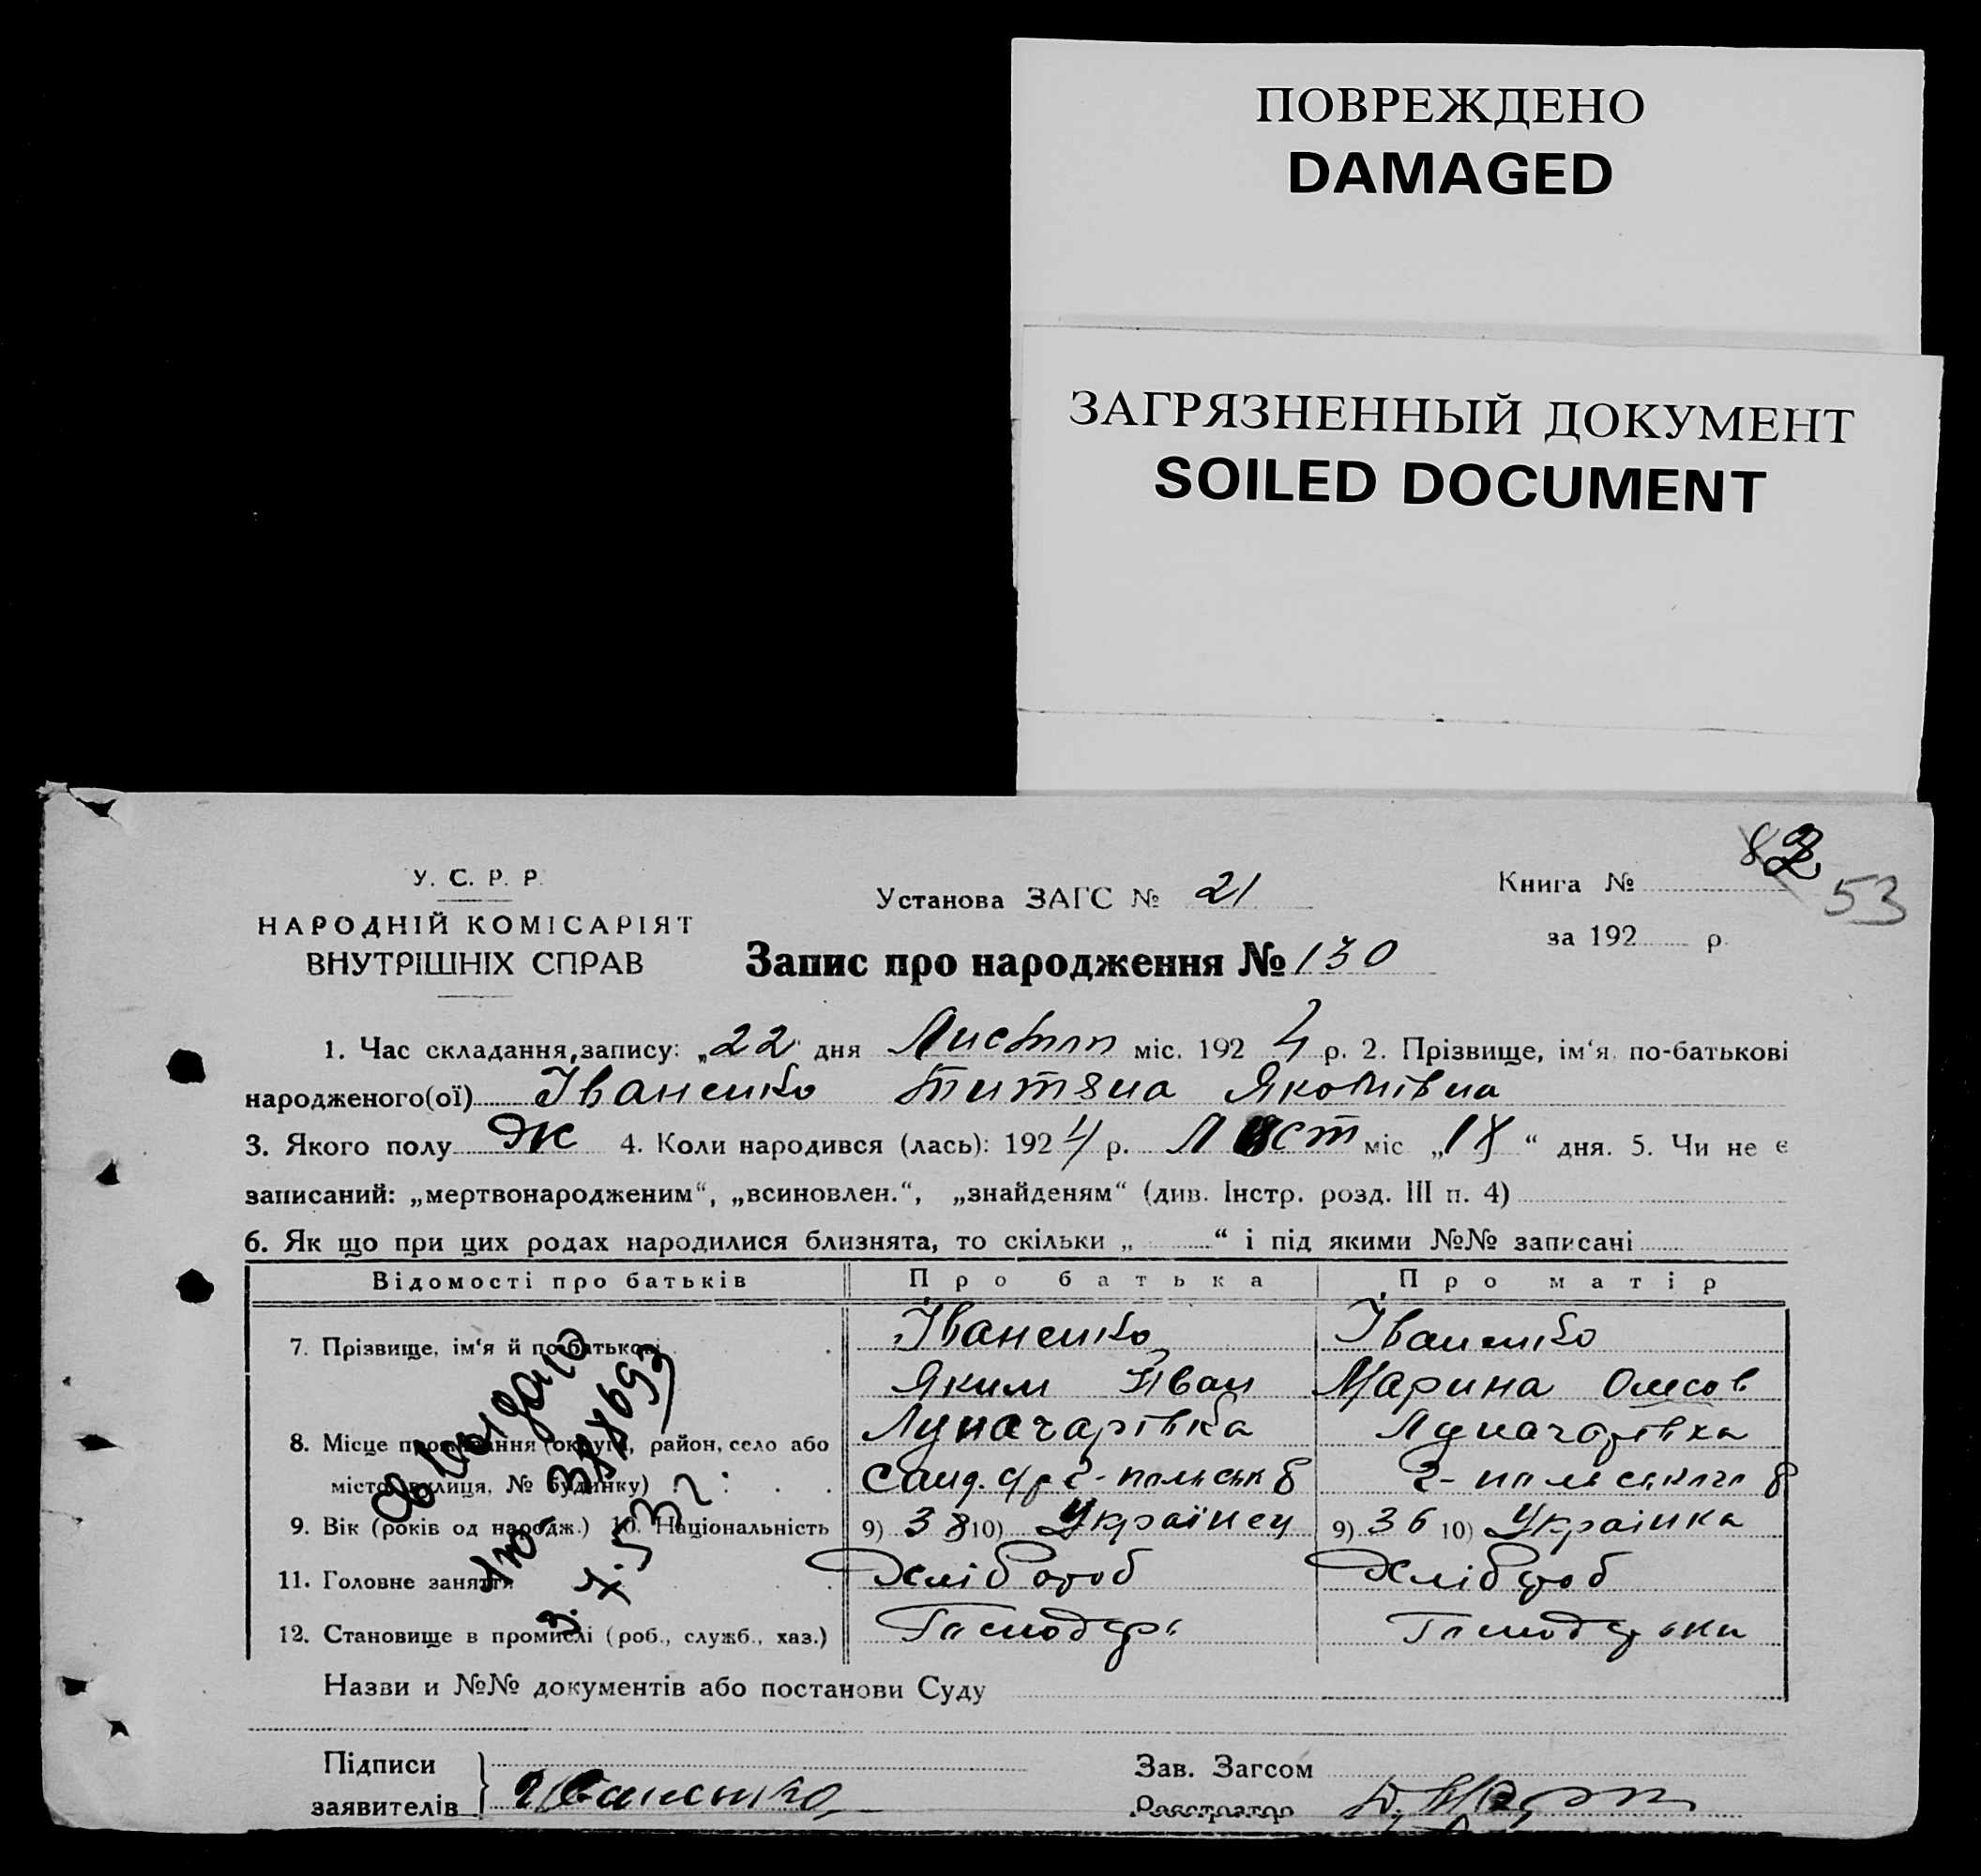 ПОВРЕЖДЕНО
DAMAGED
ЗАГРЯЗНЕННЫЙ ДОКУМЕНТ
SOILED DOCUMENT
53
У. С. Р. Р.
НАРОДНІЙ КОМІСАРІЯТ
ВНУТРІШНІХ СПРАВ
Установа ЗАГС № 21
Книга №
за 192 р.
Запис про народження № 130
1. Час складання запису: „22" дня Листоп міс. 1924 р. 2. Прізвище, ім'я по-батькові
народженого(ої) Іваненко Титяна Якомівна
3. Якого полу Ж 4. Коли народився (лась): 1924 р. Лист міс „18“ дня. 5. Чи не є
записаний: „мертвонародженим“, „всиновлен.“, „знайденям“ (див. Інстр. розд. III п. 4)
6. Як що при цих родах народилися близнята, то скільки „ “ і під якими №№ записані
Відомості про батьків Про батька Про матір
7. Прізвище, ім'я й по-батькові Іваненко Іваненко
Яким Іван Марина Олесов
8. Місце проживання (округа, район, село або Луначарівка Луначарівка
місто, вулиця, № будинку)
9. Вік (років од народж.) 10. Національність 9) 38 10) Українец 9) 36 10) Українка
11. Головне заняття Хлібороб Хлібороб
12. Становище в промислі (роб., служб., хаз.) Господарь Господарька
Назви и №№ документів або постанови Суду
Підписи
заявителів Іваненко
Зав. Загсом
Реєстратор